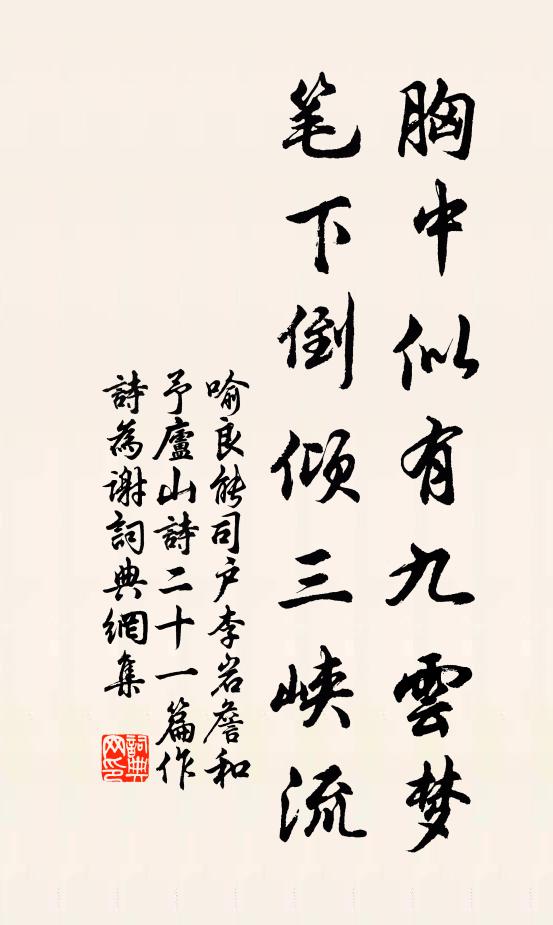 胸中似有九雲梦
笔下倒倾三峡流
喻良能司户李岩詹和
予廬山詩二十一篇作
詩為谢詞典網集
詞典
网印